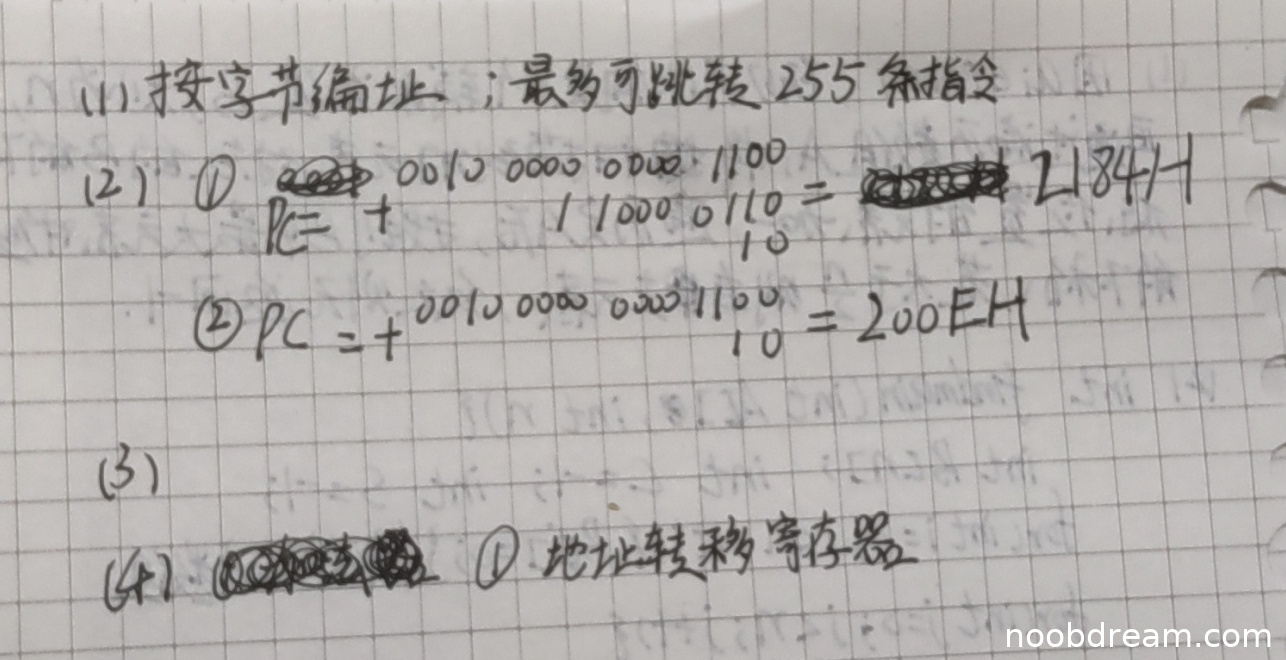 (1) 按字节编址；最多可跳转 255 条指令
(2) ① 0010 0000 0000 1100
PC= + 1 1000 0110 = 2184H
10
② PC = + 0010 0000 0000 1100 = 200EH
10
(3)
(4) ① 地址转移寄存器
noobdream.com